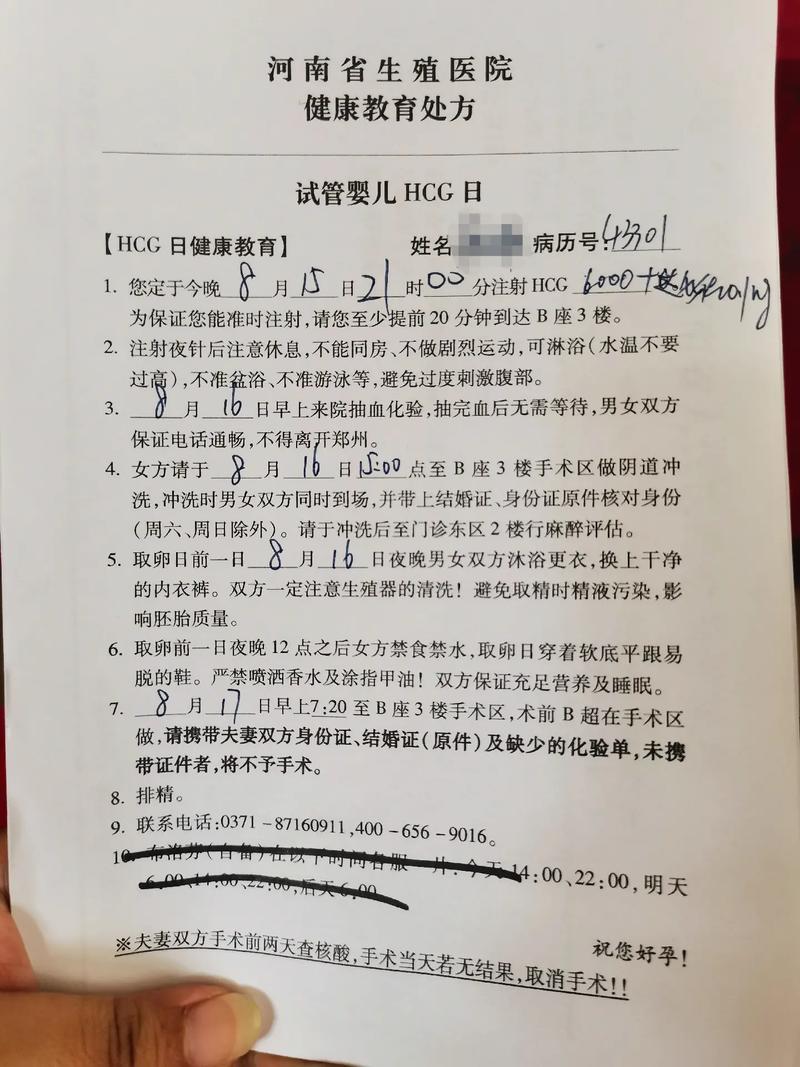 河南省生殖医院
健康教育处方
试管婴儿 HCG 日
【HCG 日健康教育】 姓名 病历号:43301
1. 您定于今晚 8 月 15 日 21 时 00 分注射 HCG 6000+
为保证您能准时注射,请您至少提前 20 分钟到达 B 座 3 楼。
2. 注射夜针后注意休息,不能同房、不做剧烈运动,可淋浴(水温不要
过高),不准盆浴、不准游泳等,避免过度刺激腹部。
3. 8 月 16 日早上来院抽血化验,抽完血后无需等待,男女双方
保证电话通畅,不得离开郑州。
4. 女方请于 8 月 16 日 15:00 点至 B 座 3 楼手术区做阴道冲
洗,冲洗时男女双方同时到场,并带上结婚证、身份证原件核对身份
(周六、周日除外)。请于冲洗后至门诊东区 2 楼行麻醉评估。
5. 取卵日前一日 8 月 16 日夜晚男女双方沐浴更衣,换上干净
的内衣裤。双方一定注意生殖器的清洗!避免取精时精液污染,影
响胚胎质量。
6. 取卵前一日夜晚 12 点之后女方禁食禁水,取卵日穿着软底平跟易
脱的鞋。严禁喷洒香水及涂指甲油!双方保证充足营养及睡眠。
7. 8 月 17 日早上7:20 至 B 座 3 楼手术区,术前 B 超在手术区
做,请携带夫妻双方身份证、结婚证(原件)及缺少的化验单,未携
带证件者,将不予手术。
8. 排精。
9. 联系电话:0371-87160911,400-656-9016。
10. 布洛芬(自备)在以下时间各服一片:今天 14:00、22:00,明天
6:00、14:00、22:00,后天 6:00
祝您好孕!
※夫妻双方手术前两天查核酸,手术当天若无结果,取消手术!!